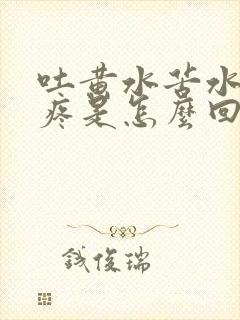 吐黄水苦水
疼是怎麼回
钱俊瑞